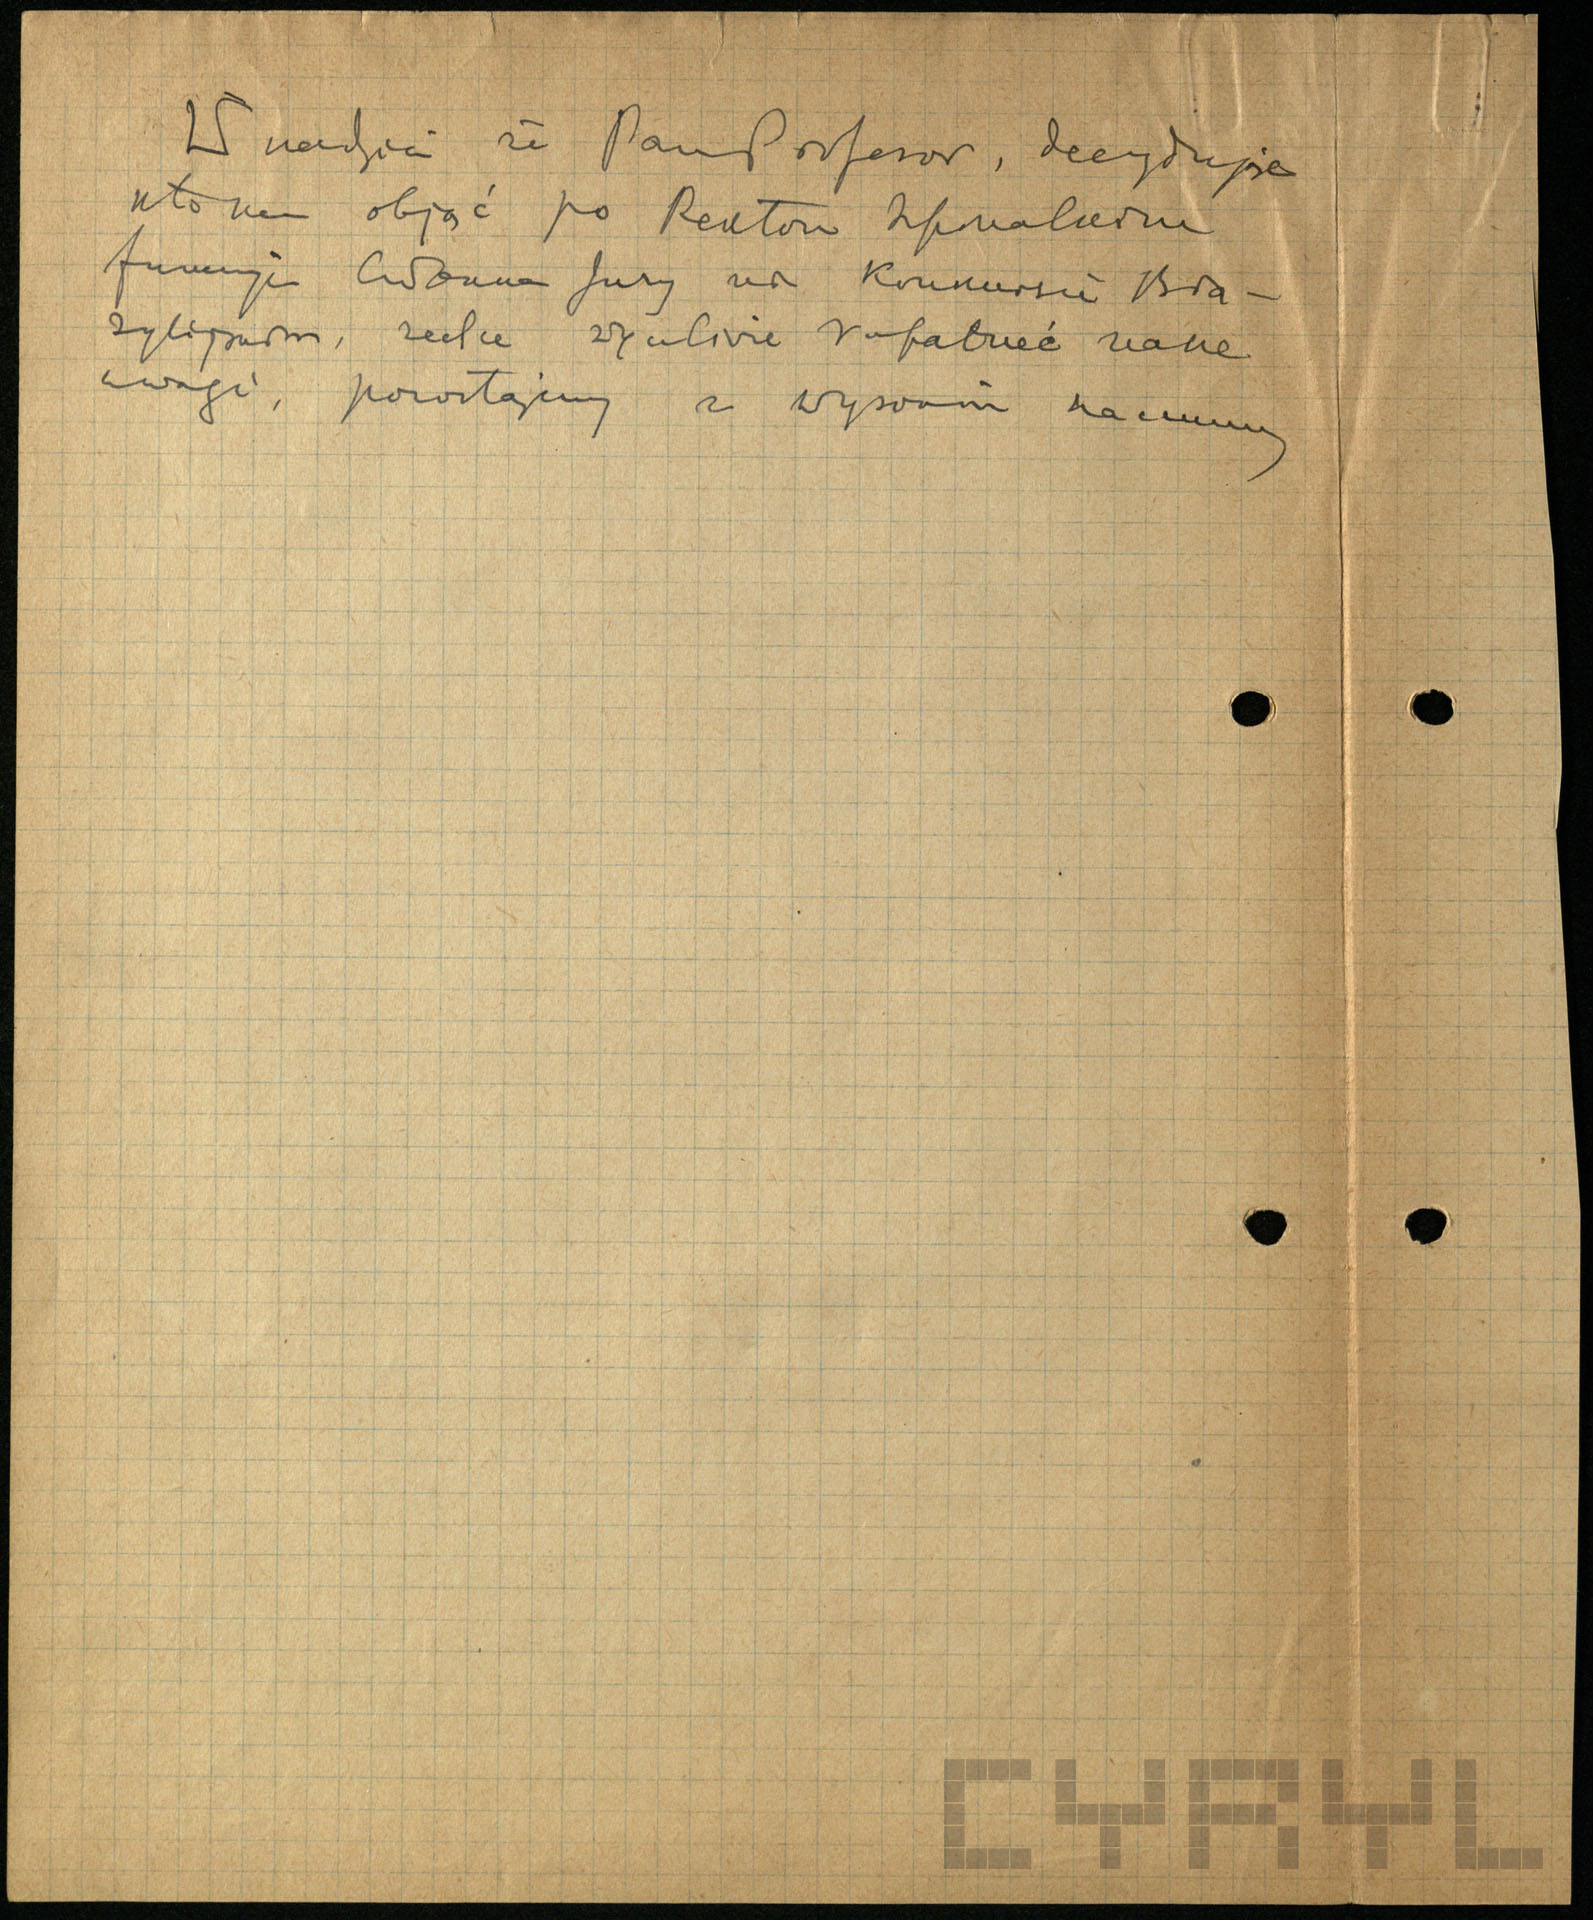 W nadziei że Pan Profesor, decydując
kto ma objąć po Rektorze Spinalskim
funkcję Członka Jury na Konkursie Bra-
zylijskim, zechce życzliwie rozpatrzeć nasze
uwagi, pozostajemy z wysokim szacunkiem
CYRYL